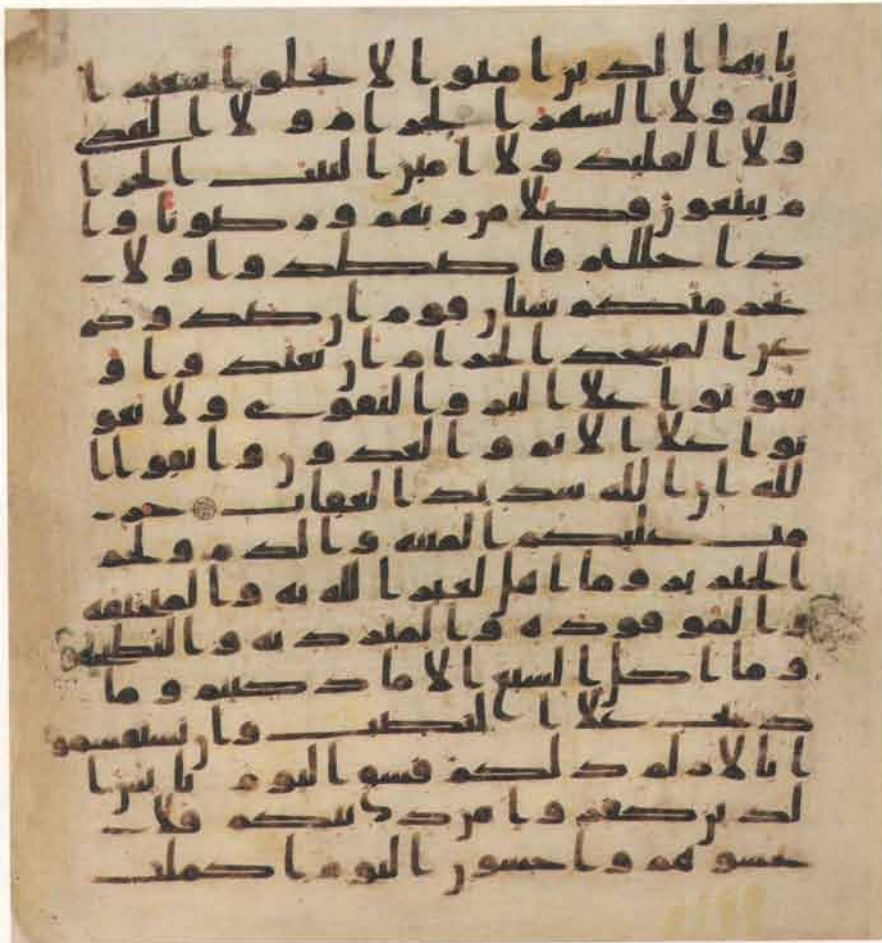 يايها الذين امنوا لا تحلوا شعير ا
لله ولا الشهر الحرام ولا الهدي
ولا القليد ولا امين البيت الحرا
م يبتغون فضلا من ربهم ورضونا وا
ذا حللتم فاصطدوا ولا
يجرمنكم شنان قوم ان صدوكم
عن المسجد الحرام ان تعتدوا و
تعونوا علا البر والتقوى ولا تعو
نوا علا الاثم والعدون واتقوا ا
لله ان الله شديد العقاب حر
مت عليكم الميتة والدم ولحم
الخنزير وما اهل لغير الله به والمنخنقة
والموقوذة والمتردية والنطيحة
وما اكل السبع الا ما ذكيتم وما
ذبح علا النصب وان تستقسمو
ا بالازلم ذلكم فسق اليوم يئس ا
لذين كفروا من دينكم فلا
تخشوهم واخشون اليوم اكملت